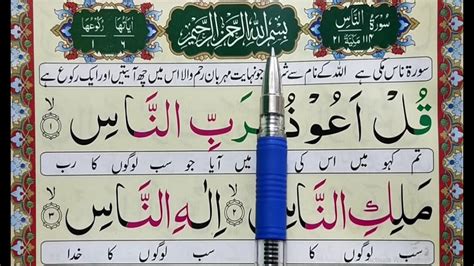 سُوْرَةُ النَّاسِ ١١٤ ٢١ بِسْمِ اللّٰهِ الرَّحْمٰنِ الرَّحِيْمِ اٰيَاتُهَا ٦ رُكُوْعُهَا ١
سورۃ ناس مکی ہے اللہ کے نام سے جو نہایت مہربان رحم والا اس میں چھ آیتیں اور ایک رکوع ہے
قُلْ اَعُوْذُ رَبِّ النَّاسِ ۙ ١
تم کہو میں اس کی میں آیا جو سب لوگوں کا رب
مَلِكِ النَّاسِ ۙ ٢ اِلٰهِ النَّاسِ ۙ ٣
سب لوگوں کا سب لوگوں کا خدا